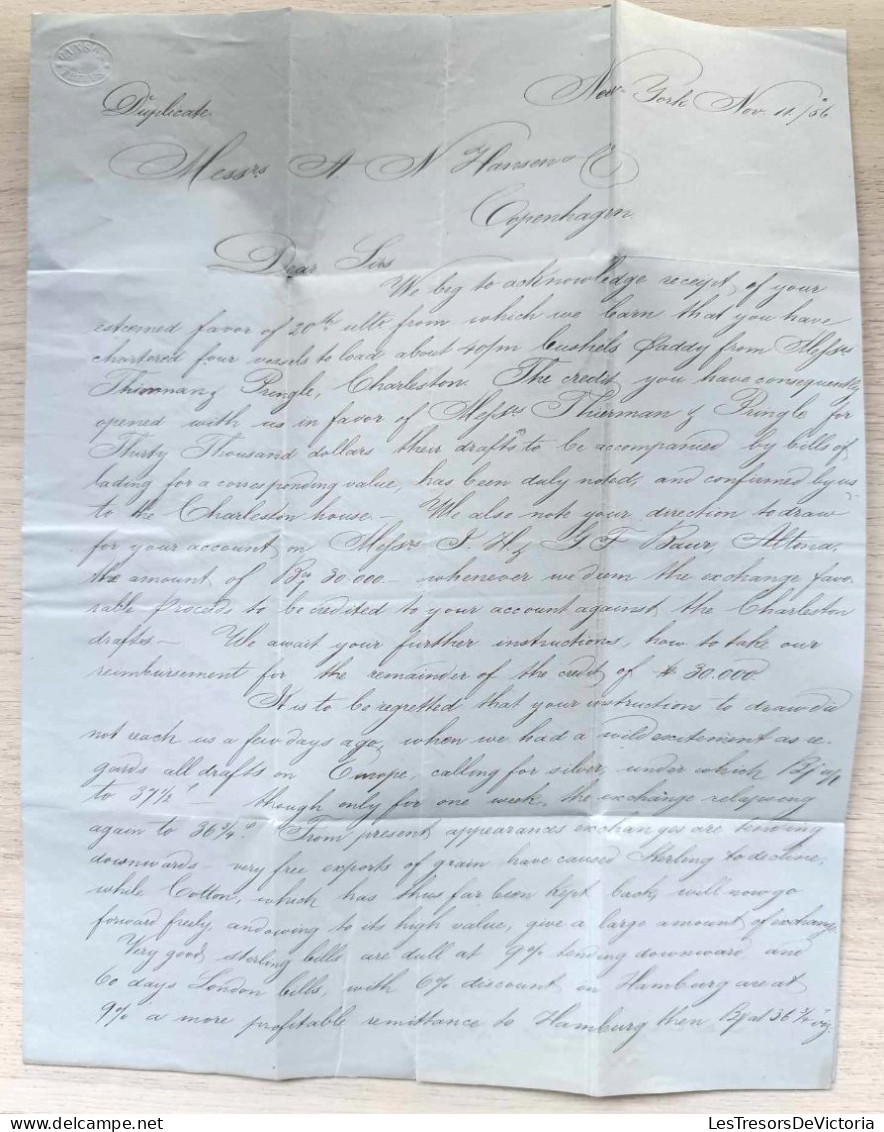 Duplicate
New York Nov. 11/56
Messrs A N Hansen & Co
Copenhagen
Dear Sirs
We beg to acknowledge receipt of your
esteemed favor of 20th ulto from which we learn that you have
chartered four vessels to load about 40/m bushels Paddy from Messrs
Thiermann & Pringle, Charleston. The credit you have consequently
opened with us in favor of Messrs Thierman & Pringle for
Thirty Thousand dollars their drafts to be accompanied by bills of
lading for a corresponding value, has been duly noted, and confirmed by us
to the Charleston house. — We also note your direction to draw
for your account on Messrs J. H. & G. F. Baur, Altona,
the amount of Bco 30.000 — whenever we deem the exchange favo-
rable proceeds to be credited to your account against the Charleston
drafts — We await your further instructions, how to take our
reimbursement for the remainder of the credit of $ 30.000
It is to be regretted that your instruction to draw did
not reach us a few days ago, when we had a wild excitement as re-
gards all drafts on Europe, calling for silver, under which
to 37 1/2 — though only for one week, the exchange relapsing
again to 36 3/4. From present appearances exchanges are tending
downwards — very free exports of grain have caused Sterling to decline,
while Cotton, which has thus far been kept back, will now go
forward freely, and owing to its high value, give a large amount of exchange.
Very good sterling bills are dull at 9% tending downward and
60 days London bills, with 6% discount in Hamburg are at
9% a more profitable remittance to Hamburg then Bco at 36 3/4
LesTresorsDeVictoria